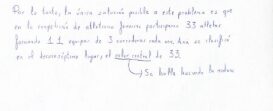 Por lo tanto, la única solución posible a este problema es que
en la competición de atletismo juvenil participaron 33 atletas
formando 11 equipos de 3 corredores cada uno, han se clasificó
en el decimoséptimo lugar, el valor central de 33.
Se halla haciendo la mediana